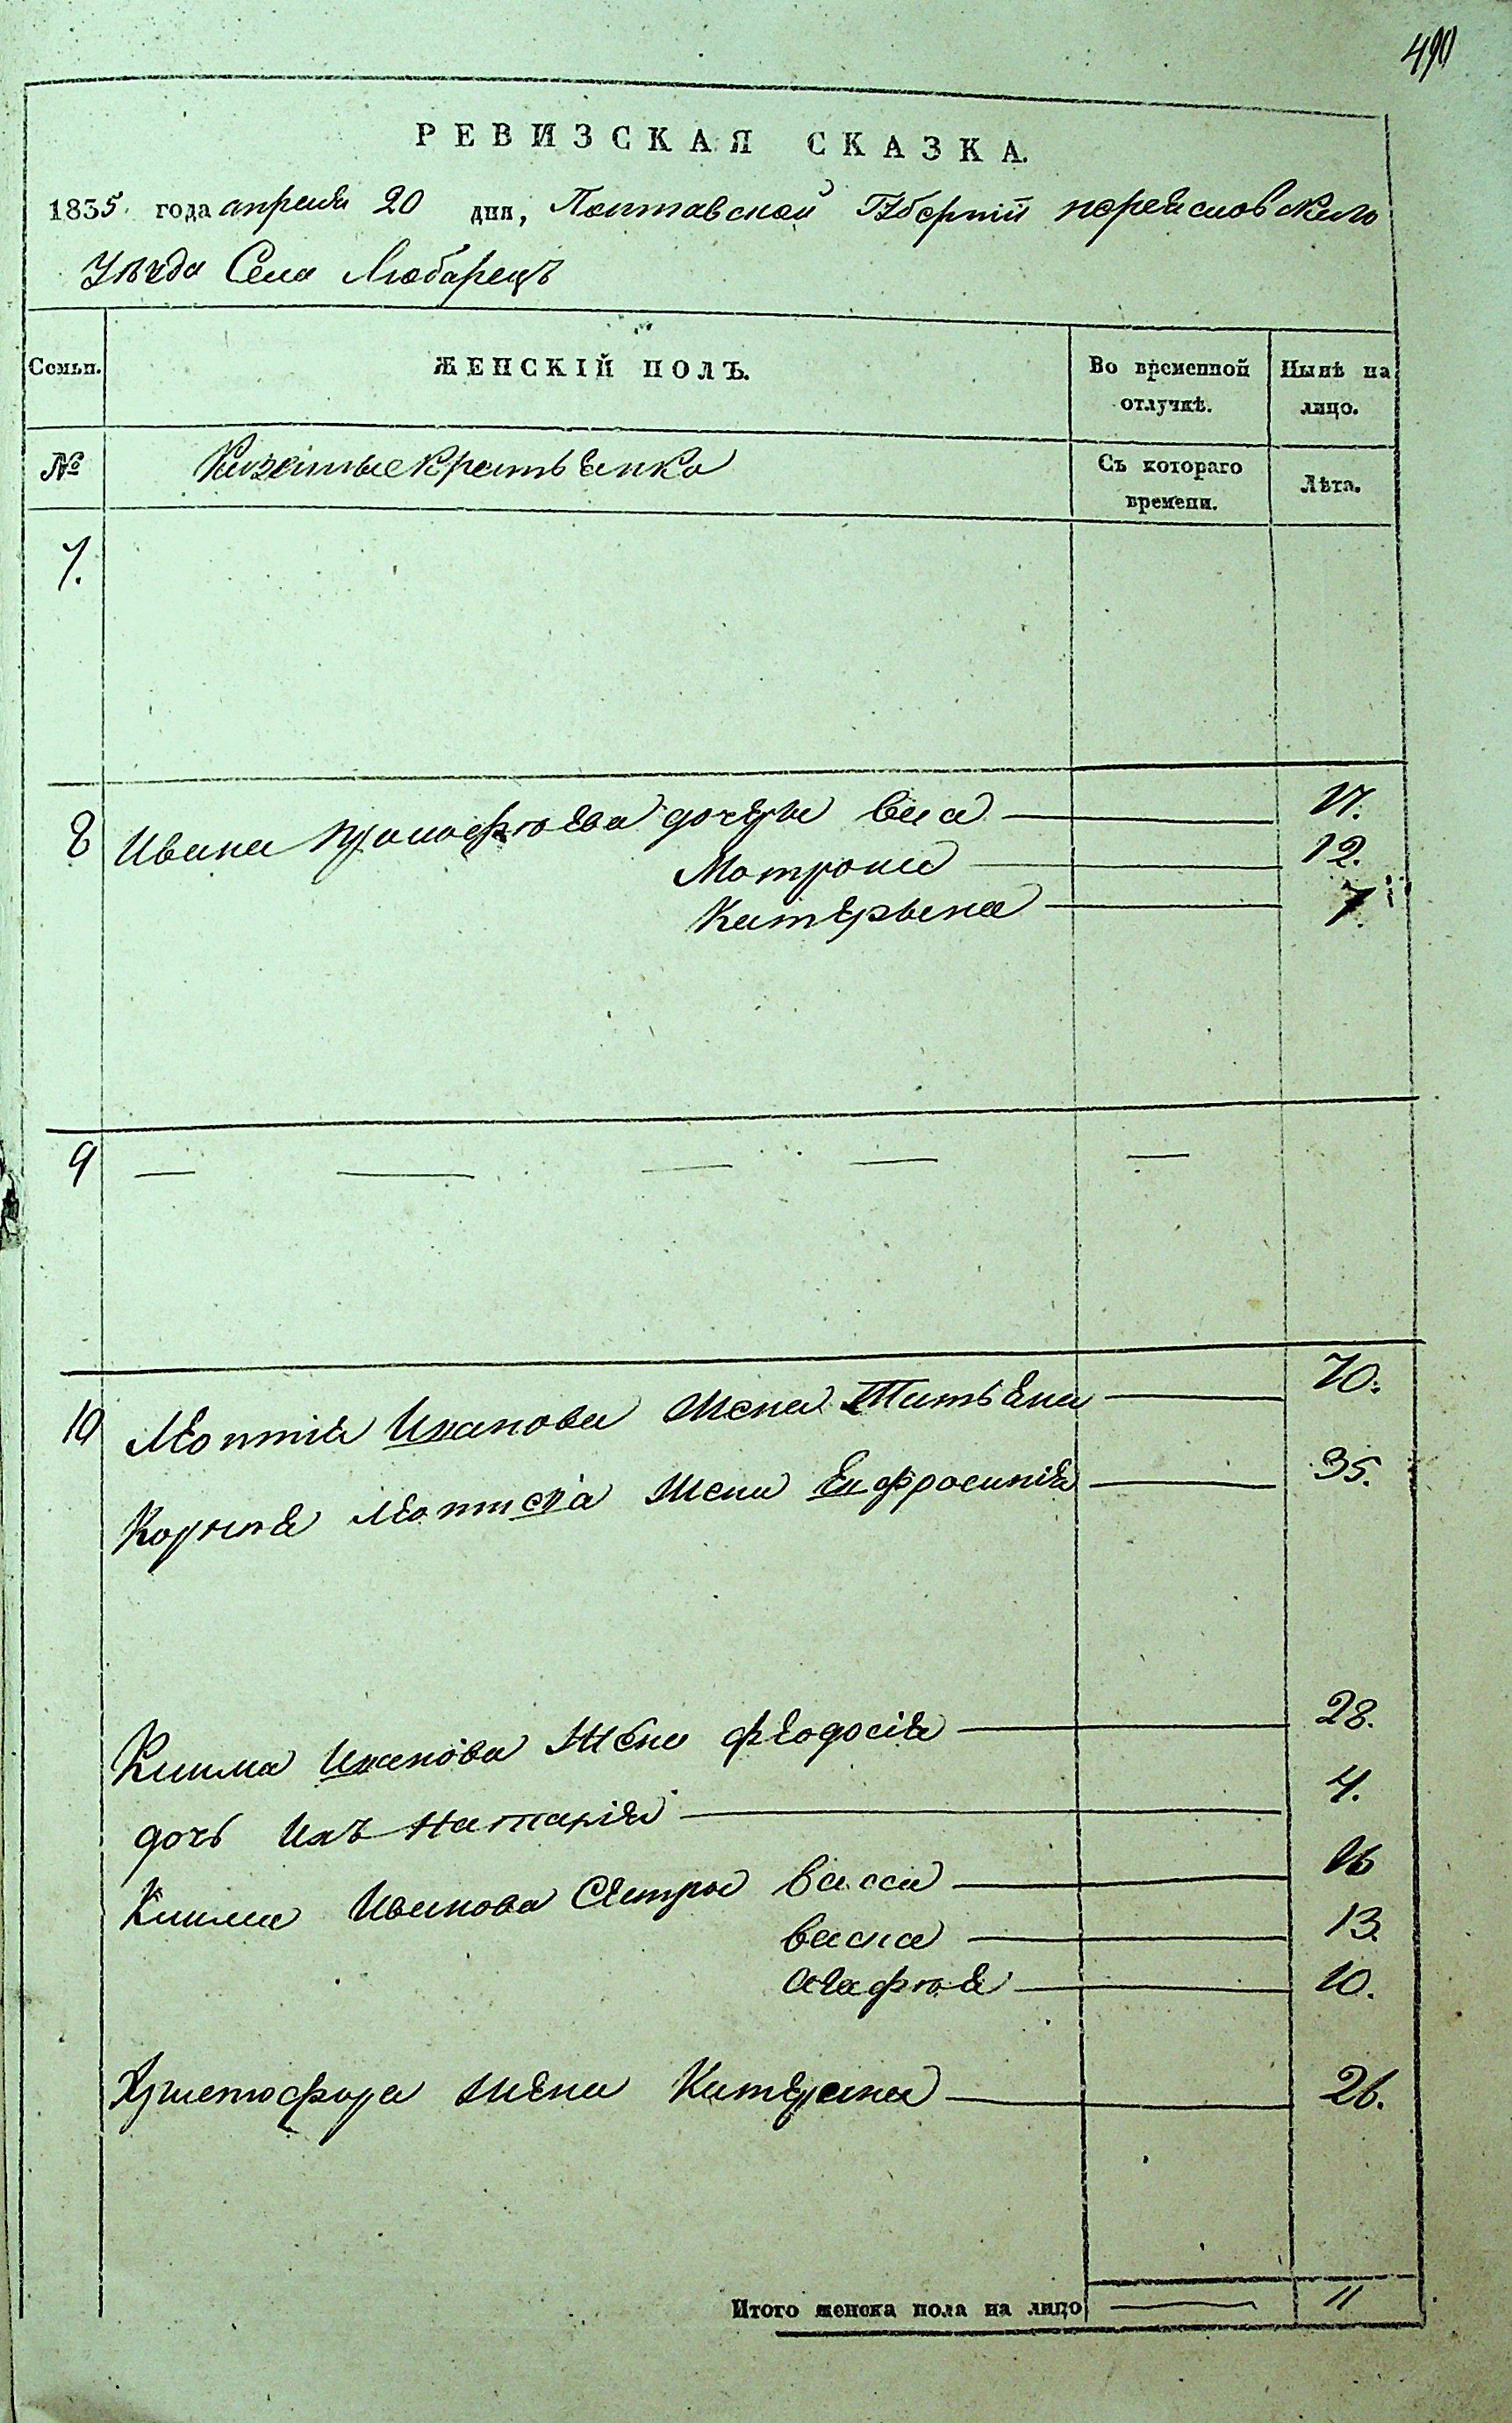 490
РЕВИЗСКАЯ СКАЗКА.
1835 года апреля 20 дня, Полтавской Губернии переяславского
Уезда Села Любарецъ
Семьи. ЖЕНСКІЙ ПОЛЪ. Во временной отлучкѣ. Нынѣ на лицо.
№ Казенные Крестьянко Съ котораго времени. Лѣта.
7.
8 Ивана дочеры 17.
Мотрона 12.
Катерына 7.
9
10 Леонтія Иванова жена Татьяна 70.
Корнея Леонтиева жена Евфросинія 35.
Клима Иванова жена феодосія 28.
дочь Ихъ Наталія 4.
Клима Иванова Сестры васса 16
васса 13.
Агафія 10.
Христофора жена Катерина 26.
Итого женска пола на лицо 11